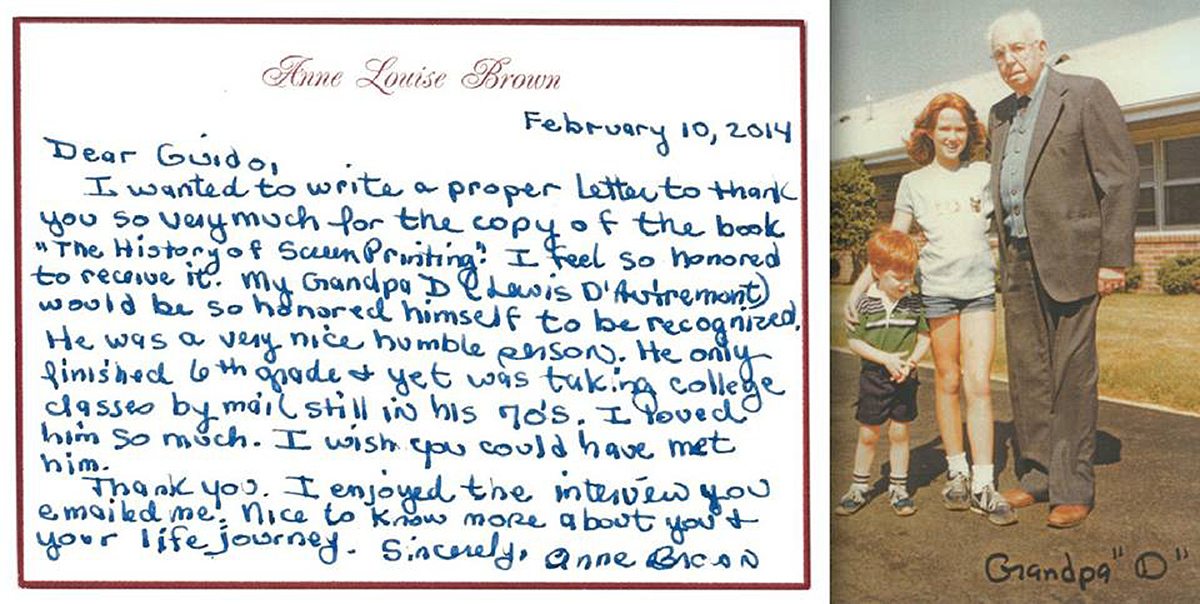 Anne Louise Brown
February 10, 2014
Dear Guido,
I wanted to write a proper letter to thank
you so very much for the copy of the book
"The History of Screen Printing". I feel so honored
to receive it. My Grandpa D (Lewis D'Autremont)
would be so honored himself to be recognized.
He was a very nice humble person. He only
finished 6th grade & yet was taking college
classes by mail still in his 70's. I loved
him so much. I wish you could have met
him.
Thank you. I enjoyed the interview you
emailed me. Nice to know more about you &
your life journey. Sincerely, Anne Brown
Grandpa "D"